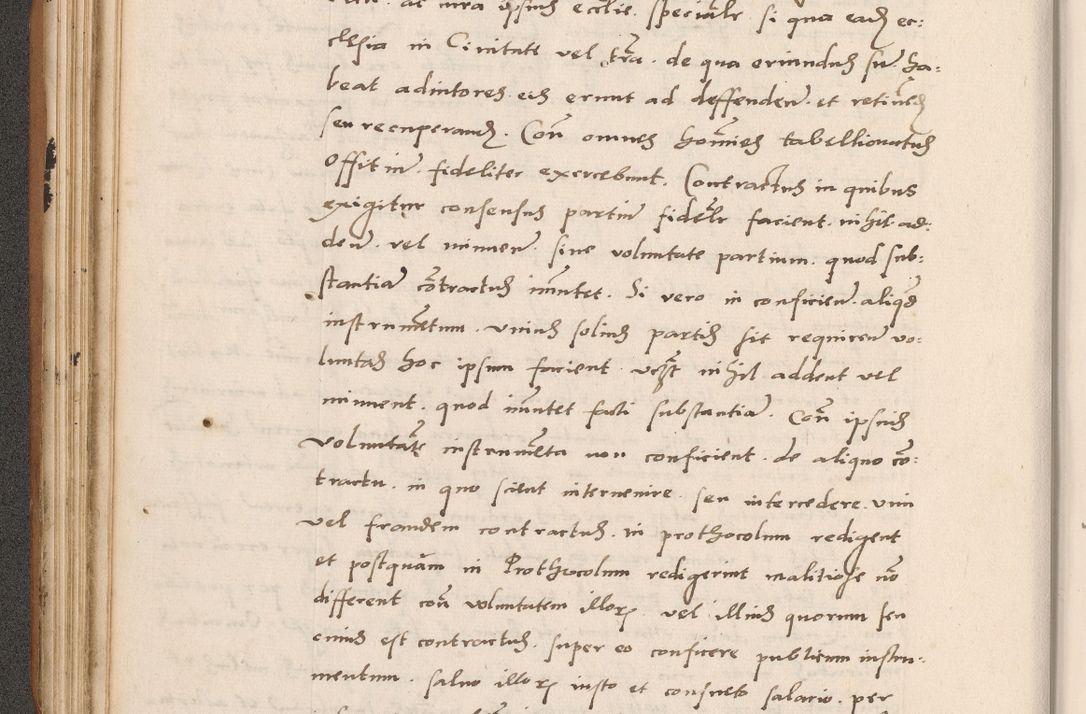 at iura ipsius ecclie. specialr si qua eadẽ ec:
clesia in Civitate vel trã. de qua eriundus fũ. ha:
beat adiutores eis erunt ad deffendenᵈ. et retinenᵈ
seu recuperandᵈ. Con omnes homies tabellionatus
Offitiũ. fideliter exercebunt. Contractus in quibus
exigitur consensus partiũ fidelr facient. nihil ad:
denᵈ. vel minuenᵈ. sine voluntate partium. quod sub:
stantiã cõtractus imutet. Si vero in conficienᵈ. aliqd
instrumẽtum. unius solius partis sit requirenᵈ vo:
luntas hoc ipsum facient. ut nihil addent vel
minuent. quod imutet facti substantiã. Con ipsius
voluntatẽ instrumẽta non conficient. de aliquo cõ:
tractu. in quo scient intervenire. seu intercedere. vim
vel fraudem contractus. in prothocolum redigent
et postquam in Prothocolum redigerint malitiose nõ
different con voluntatem illorꝝ vel illius quorum seu
cuius est contractus. super eo conficere publicum instru:
mentum. salvo illorꝝ iusto et consueto salario. per